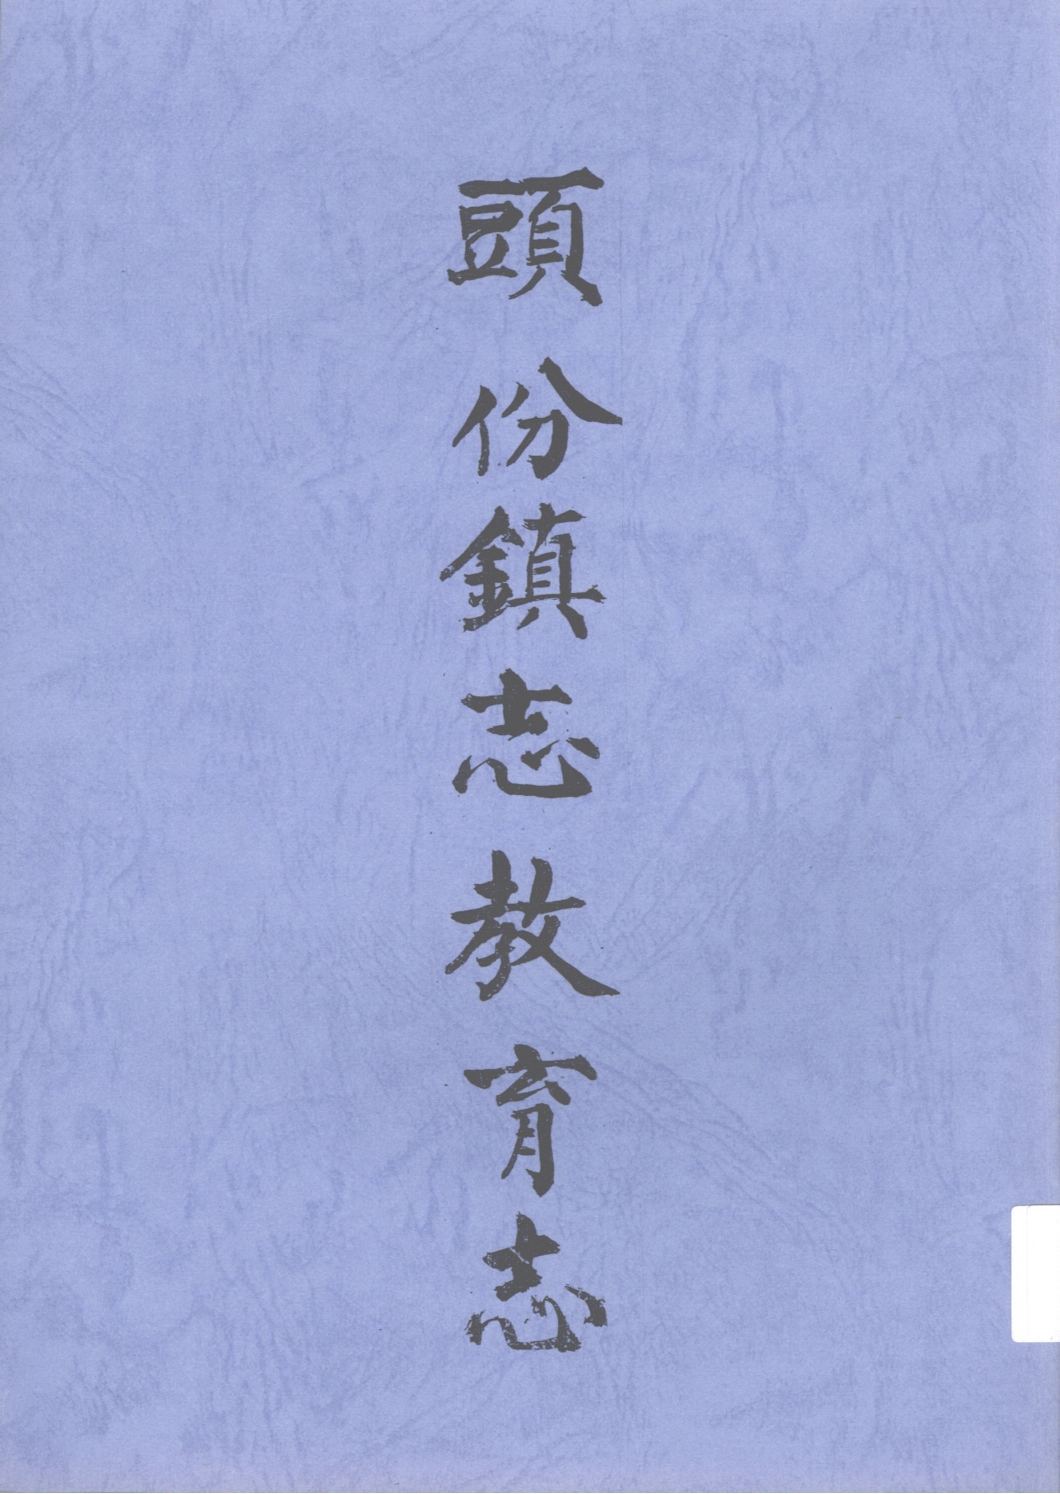 頭份鎮志教育志